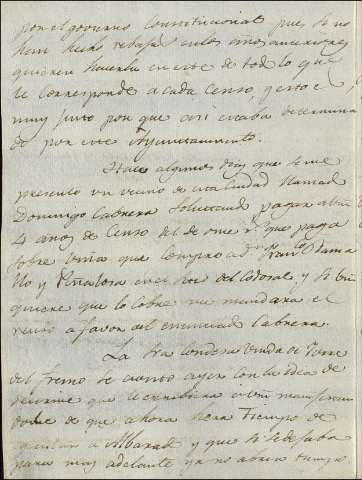 por el govierno Constitucional pues si no
han hecho rebaja en los años anteriores
quieren hacerla en este de todo lo que
le corresponde a cada Censo, y esto es
muy justo por que asi estaba determina
do por este Ayuntamiento.
Hace algunos dias que se me
presento un vecino de esta Ciudad llamado
Domingo Cabrera solicitando pagar
4 años de Censo del de once que paga
sobre viña que compro a
y Peñalosa en el del y si
quiere que lo cobre me mandara el
recivo a favor del enunciado Cabrera.
La Sra Condesa Viuda de Torre
del fresno se ayer con la idea de
que le escriviera
dome de que ahora sera tiempo de
a Albarate y que si se dejaba
para mas adelante ya no abria tiempo